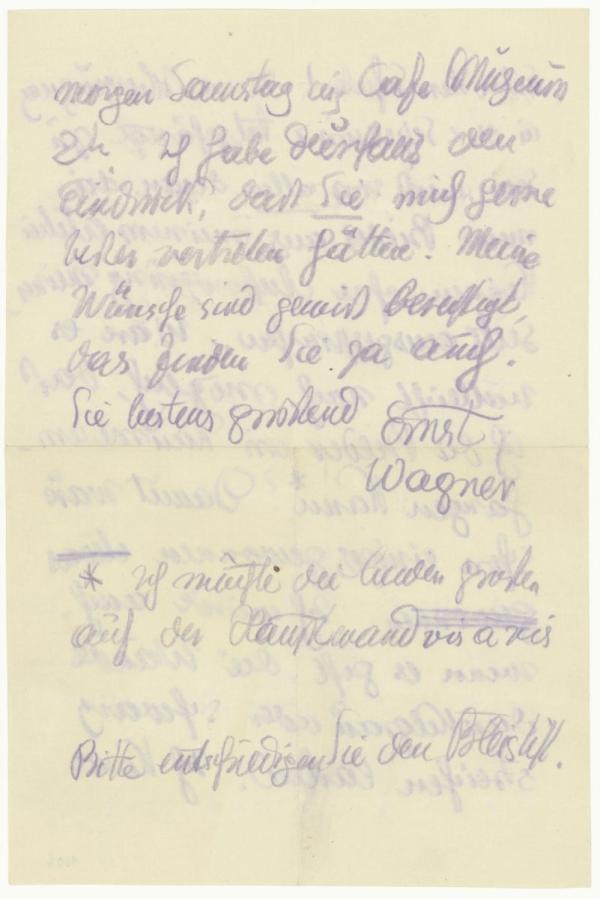 morgen Samstag ins Cafe Museum
2h ich habe durchaus den
Eindruck, dass Sie mich gerne
besser vertreten hätten. Meine
Wünsche sind gewiss berechtigt,
das finden Sie ja auch.
Sie bestens grüßend Ernst
Wagner
* ich möchte die beiden großen
auf der Hauptwand vis a vis
Bitte entschuldigen Sie den Bleistift.